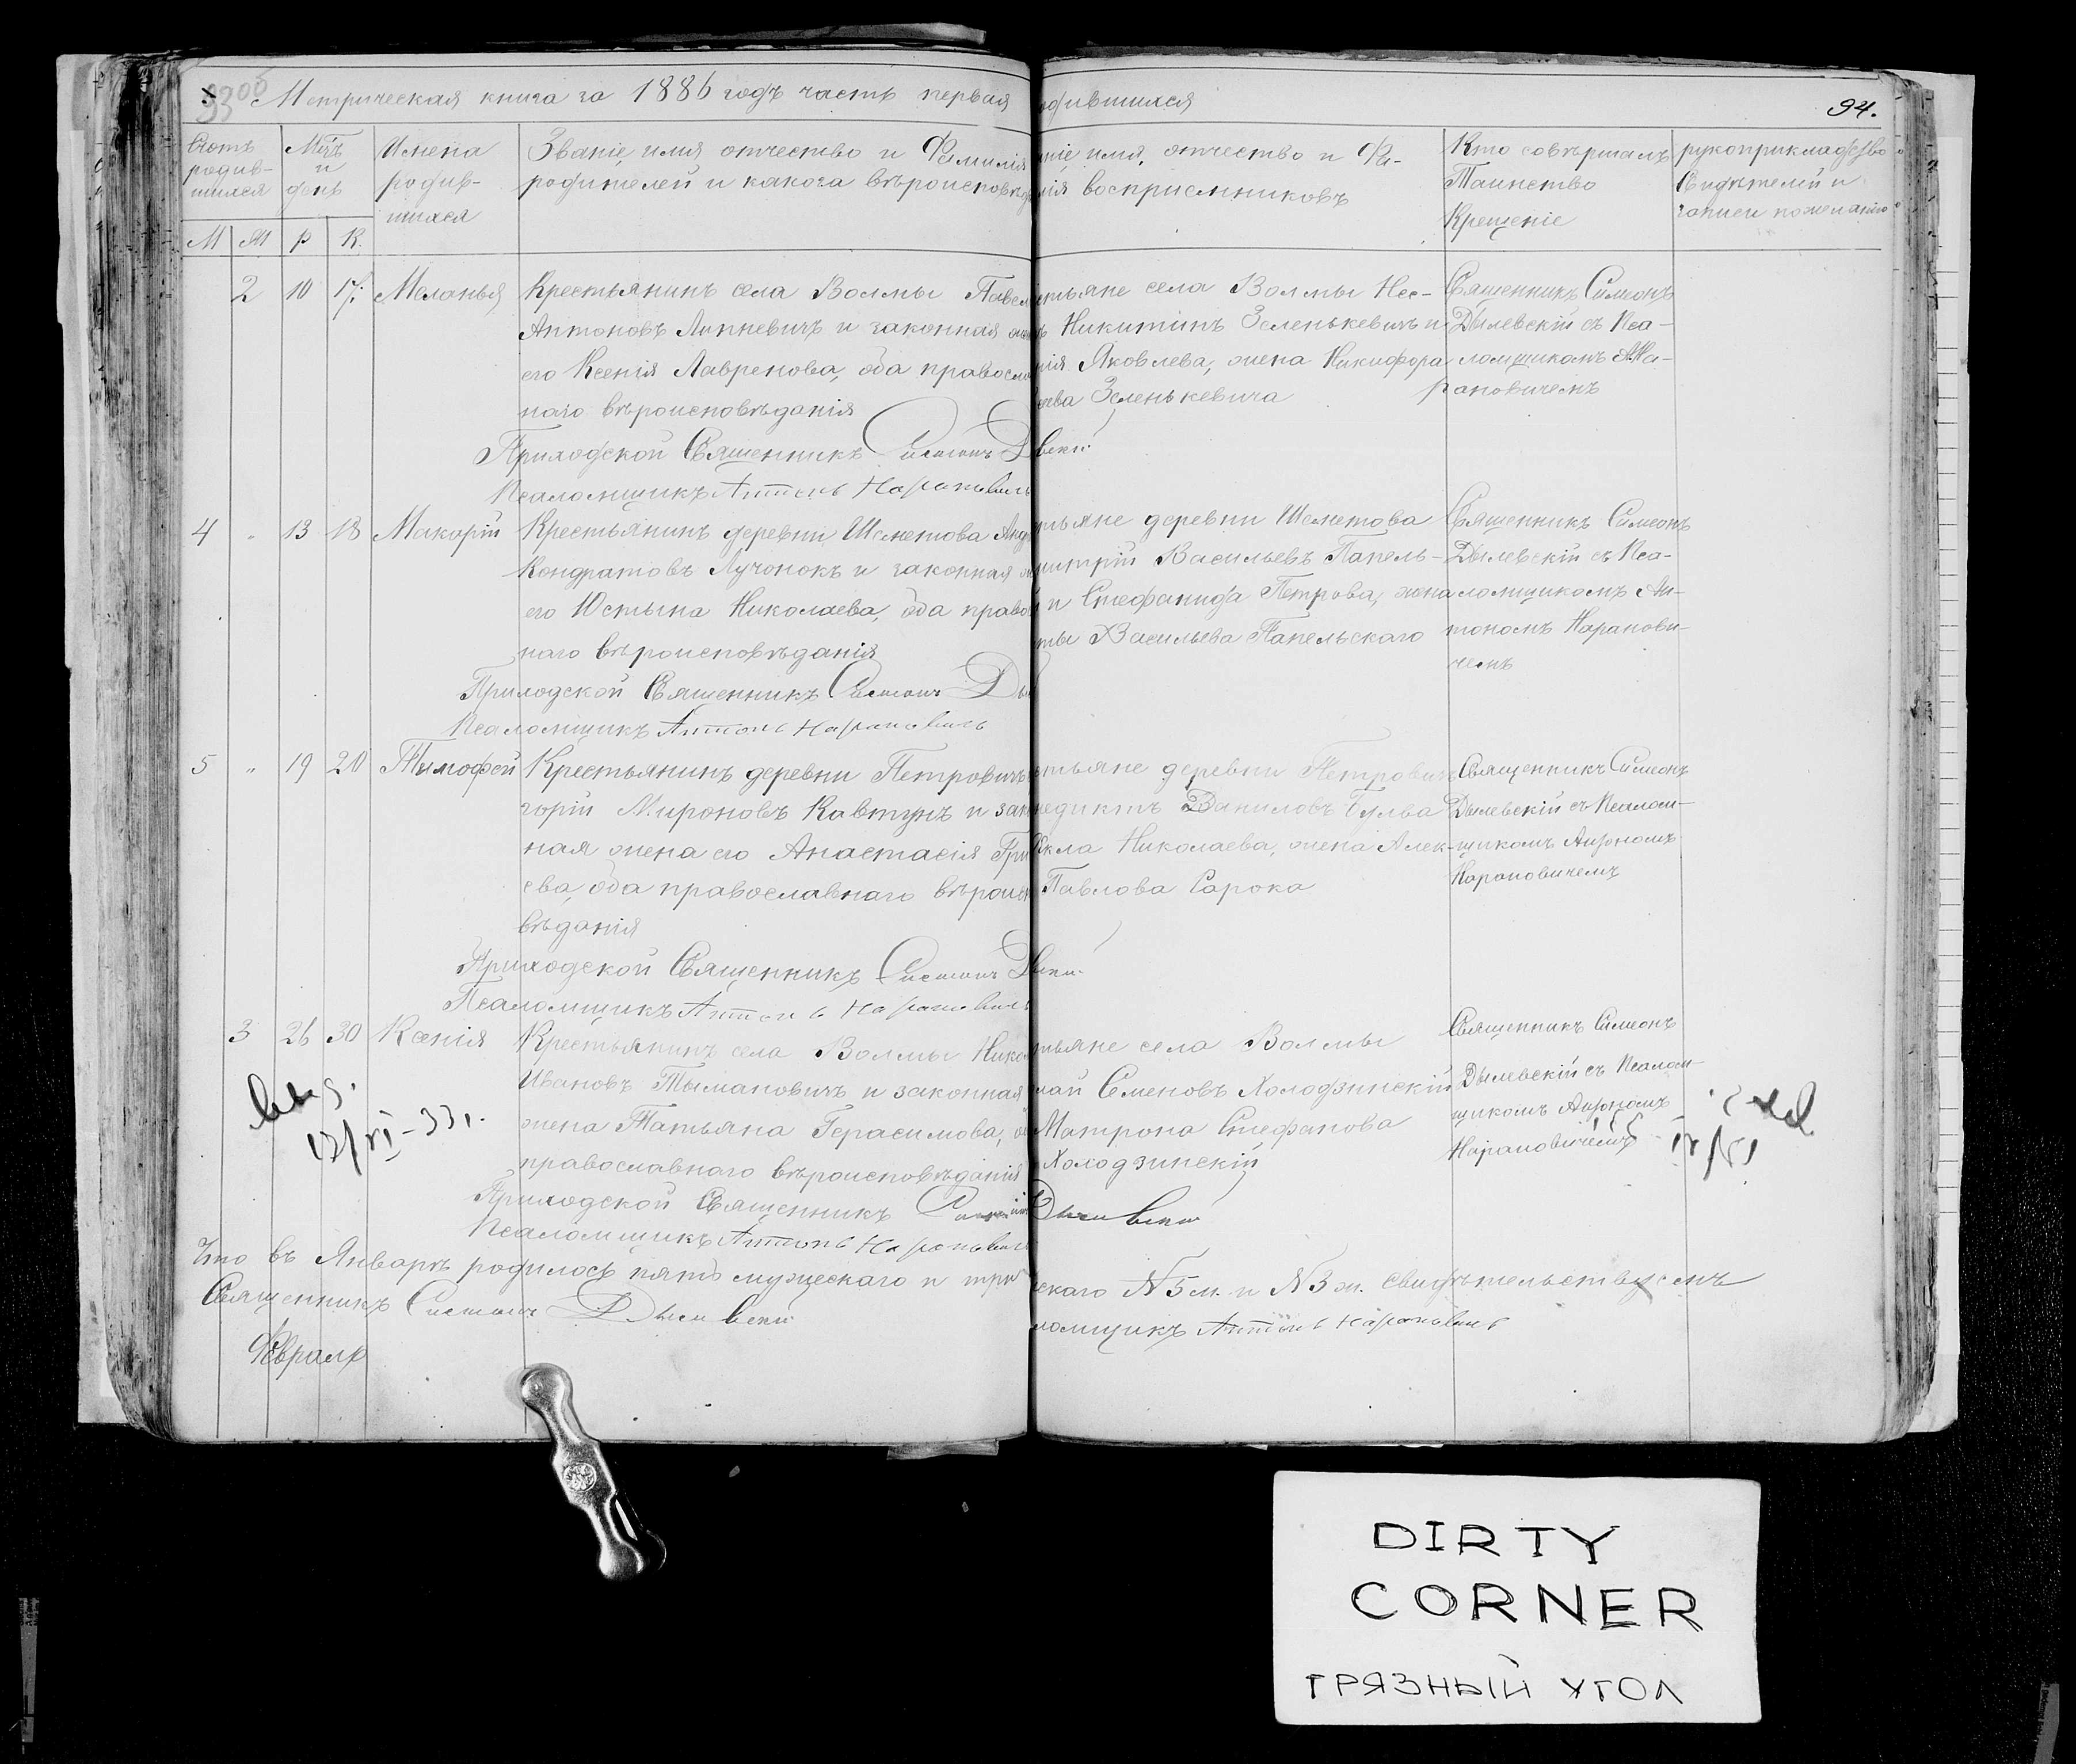 Метрическая книга за 1886 годъ часть первая
одившихся
94.
Счотъ родив-шихся
Мцъ и день
Имена родив-шихся
Званіе, имя отчество и Фамилія
родителей и какога вѣроисповѣд
ніе, имя, отчество и Фа-
лія восприемниковъ
Кто совѣршалъ
Таинство
Крещеніе
рукоприкладство
Свидѣтелей и
записи пожеланію
М М Р К.
2 10 17. Меланья Крестьянинъ села Волмы Павел
Антоновъ Липневичъ и законная
его Ксенія Лавренова, оба правосла
наго вѣроисповѣданія
Приходской Священникъ Симеонъ
Псаломщикъ Антонъ Нарановичъ
стьяне села Волмы Нес-
Никитинъ Зенькевичъ и
нія Яковлева, жена Никифора
Зенькевича
Священникъ Симеонъ
Дылевскій съ Пса-
ломщикомъ А. На-
рановичемъ
4 " 13 18 Макарій Крестьянинъ деревни Шеметова Анд
Кондратовъ Лучонокъ и законная
его Юстына Николаева, оба право
наго вѣроисповѣданія
Приходской Священникъ Симеонъ Ды
Псаломщикъ Антонъ Нарановичъ
тьяне деревни Шеметова
митрій Васильевъ Папель-
и Стефанида Петрова, жена
Васильева Папельскаго
Священникъ Симеонъ
Дылевскій съ Пса-
ломщикомъ Ан-
тономъ Наранови-
чемъ
5 " 19 20 Тымофей Крестьянинъ деревни Петровичъ
горій Мироновъ Кавтунъ и зак
ная жена его Анастасія Гри
ева, оба православнаго вѣроисп
вѣданія
Приходской Священникъ Симеонъ
Псаломщикъ Антонъ Нарановичъ
стьяне деревни Петрович
недиктъ Даниловъ Булва
Ѳекла Николаева, жена Алек-
Павлова Сарока
Священникъ Симеонъ
Дылевскій съ Псалом-
щикомъ Антономъ
Нарановичемъ
3 26 30 Ксенія Крестьянинъ села Волмы Нико
Ивановъ Тыманович и законная
жена Татьяна Герасимова, о
православнаго вѣроисповѣданія
Приходской Священникъ
Псаломщикъ Антонъ Нарановичъ
тьяне села Волмы
лай Семеновъ Холодзинскій
Матрона Стефанова
Холодзинскій
Дылевскій
Священникъ Симеонъ
Дылевскій съ Псалом-
щикомъ Антономъ
Нарановичемъ
Что въ Январѣ родилось пять мужескаго и три
скаго №5 м. и №3 ж. свидѣтельствуемъ
Священникъ Симеонъ Дылевскій
ломщикъ Антонъ Нарановичъ
Февраль
DIRTY
CORNER
ГРЯЗНЫЙ УГОЛ